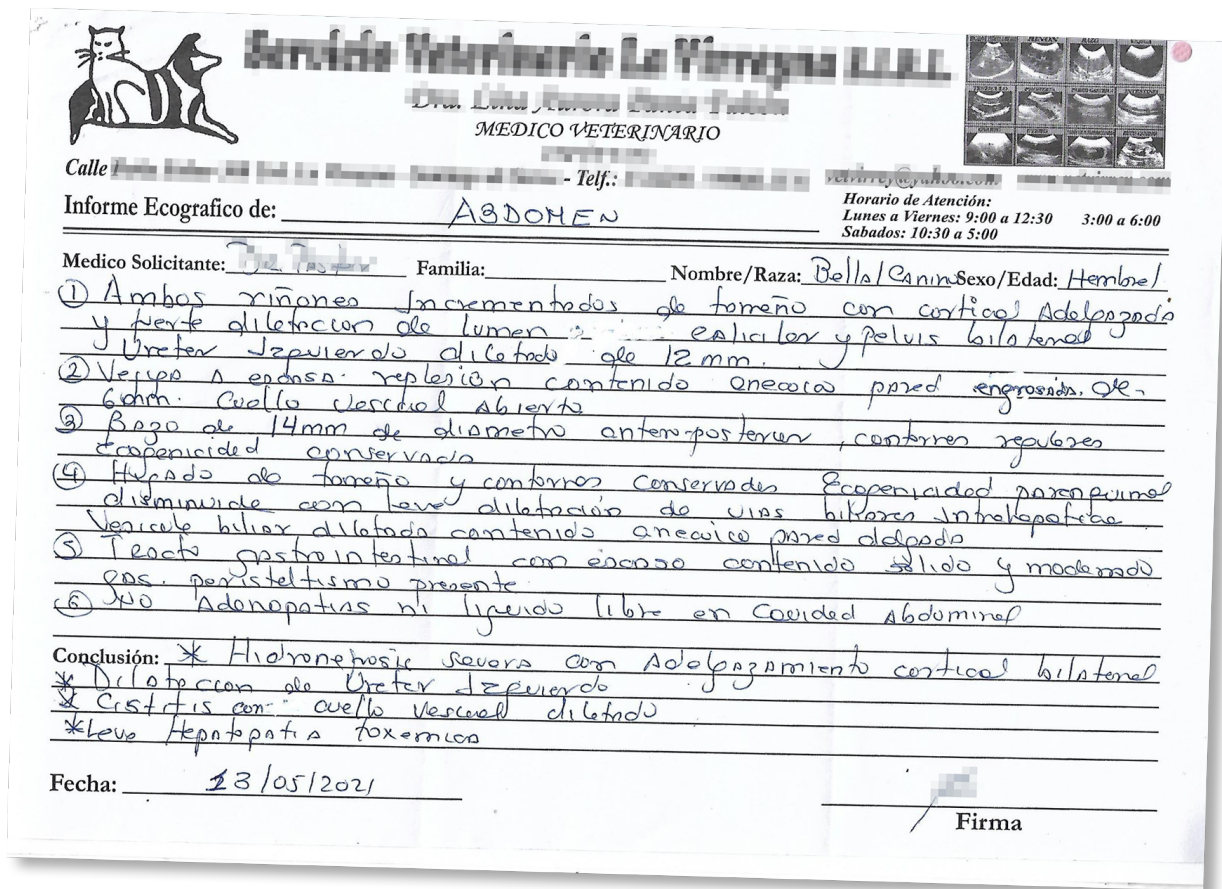 MEDICO VETERINARIO
Calle
- Telf.:
Horario de Atención:
Lunes a Viernes: 9:00 a 12:30 3:00 a 6:00
Sabados: 10:30 a 5:00
Informe Ecografico de: ABDOMEN
Medico Solicitante: Familia: Nombre/Raza: Bella/Canino Sexo/Edad: Hembra/
① Ambos riñones Incrementados de tomeño con cortical Adelgazada
y fuerte dilatacion de lumen y pelvis bilateral
Ureter Izquierdo dilatado de 12 mm.
② Vejiga a escasa replesion contenido anecoico pared engrosada. de
6 mm. Cuello vesical Abierto
③ Bazo de 14mm de diametro antero-posterior, contornos regulares
Ecogenicidad conservada
④ Higado de tomeño y contornos conservados Ecogenicidad parenquimal
disminuida con leve dilatación de vias biliares Intrahepaticas
Vesicula biliar dilatada contenido anecoico pared delgada
⑤ Tracto gastrointestinal con escaso contenido sólido y moderado
gas. peristaltismo presente
⑥ NO Adenopatias ni liquido libre en Cavidad Abdominal
Conclusión: * Hidronefrosis severa con Adelgazamiento cortical bilateral
* Dilatacion de Ureter Izquierdo
* Cistitis con cuello vesical dilatado
* Leve Hepatopatia toxemica
Fecha: 13/05/2021
Firma